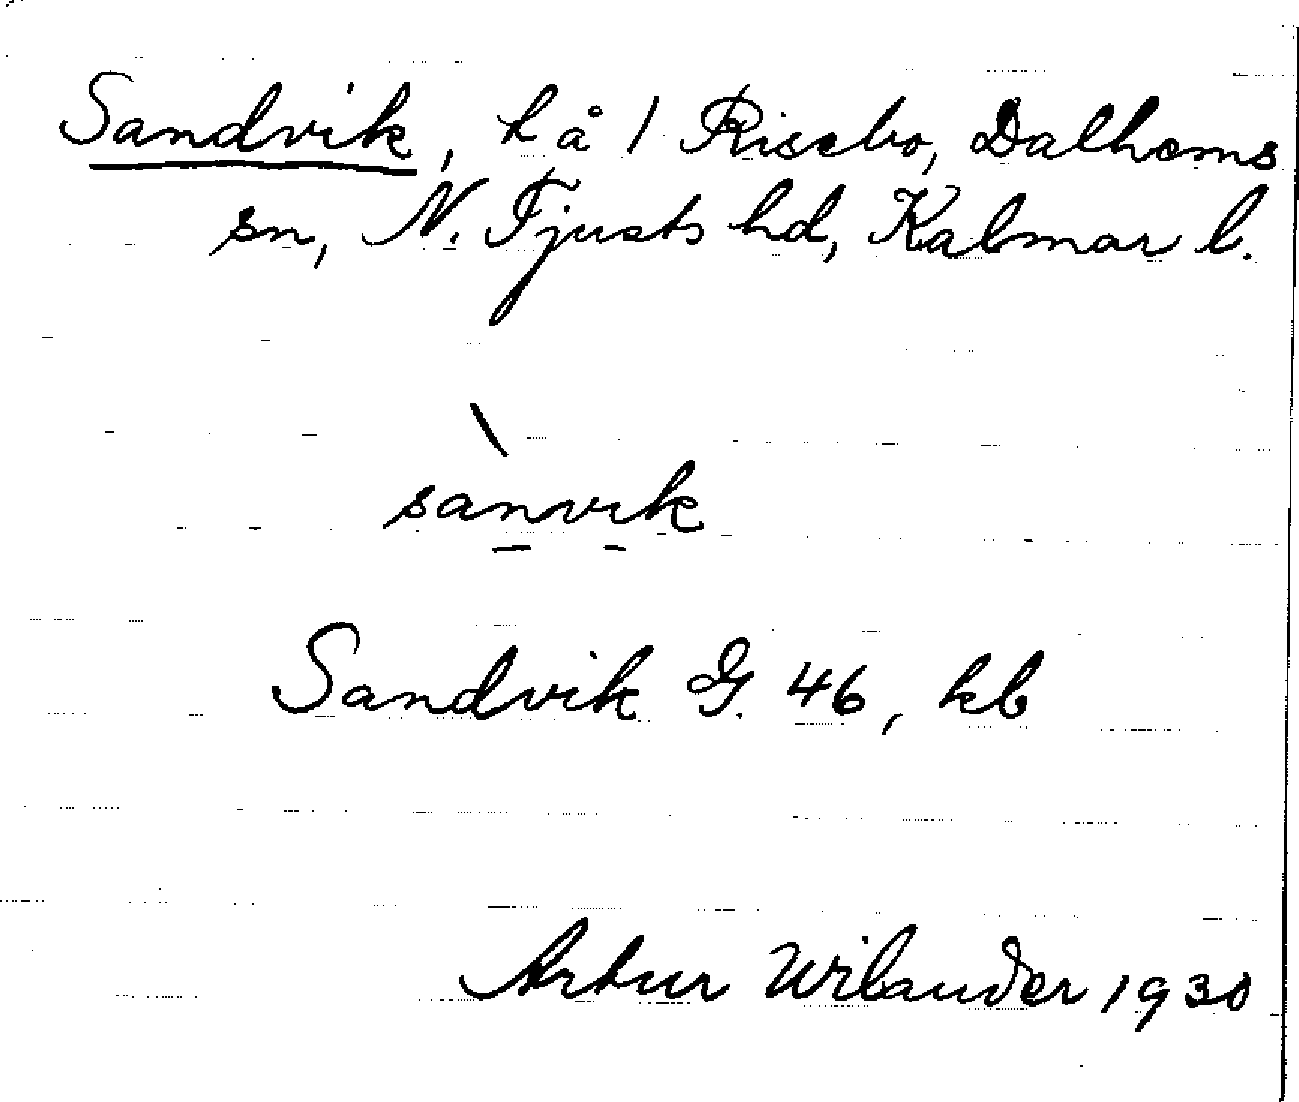 Sandvik, h å 1 Risebo, Dalhems
sn, N. Tjusts hd, Kalmar l.
sanvik
Sandvik G. 46, kb
Artur Wilander 1930